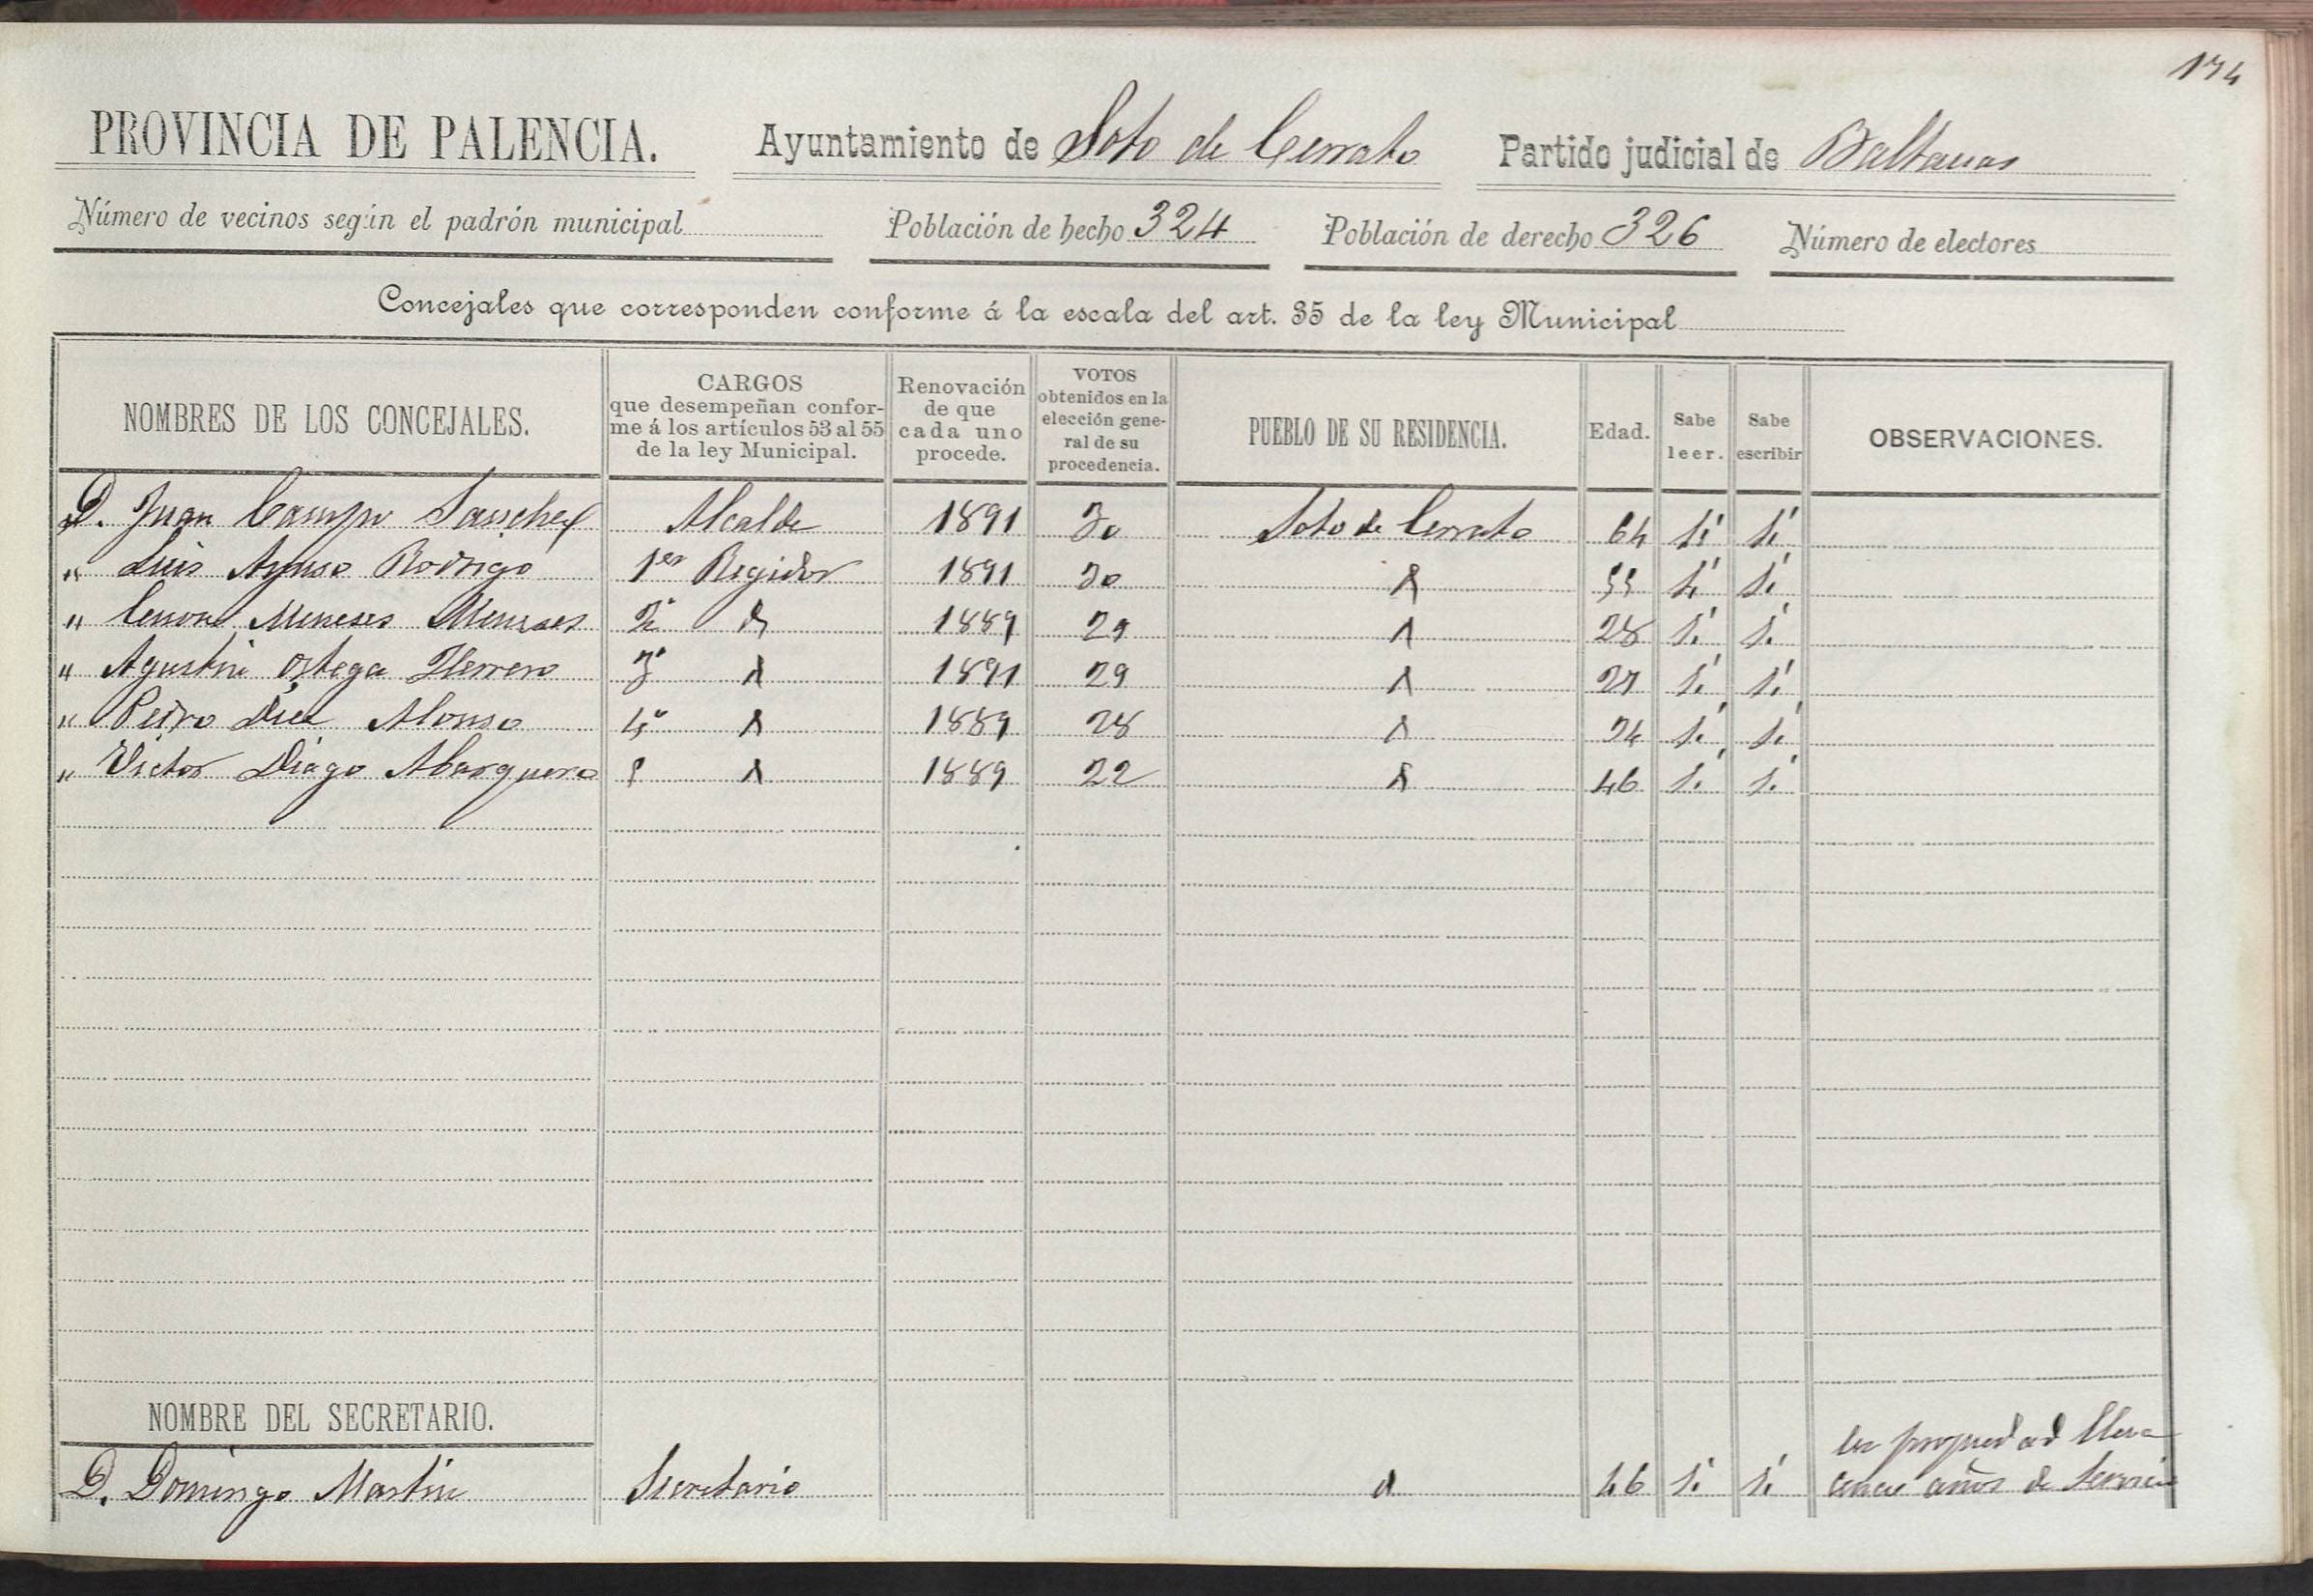 174
PROVINCIA DE PALENCIA. Ayuntamiento de Soto de Cerrato Partido judicial de Baltanas
Número de vecinos según el padrón municipal Población de hecho 324 Población de derecho 326 Número de electores
Concejales que corresponden conforme á la escala del art. 35 de la ley Municipal
NOMBRES DE LOS CONCEJALES. CARGOS que desempeñan confor-me á los artículos 53 al 55 de la ley Municipal. Renovación de que cada uno procede. VOTOS obtenidos en la elección gene-ral de su procedencia. PUEBLO DE SU RESIDENCIA. Edad. Sabe leer. Sabe escribir OBSERVACIONES.
D. Juan Campo Sanchez Alcalde 1891 30 Soto de Cerrato 64 Sí Sí
" Luis Ayuso Rodrigo 1er Regidor 1891 30 55 Sí Sí
" Cenon Meneses Meneses 2º 1889 29 28 Sí Sí
" Agustin Ortega Herrero 3º 1891 29 27 Sí Sí
" Pedro Diez Alonso 4º 1889 28 34 Sí Sí
" Victor Diago Abarquero 5 1889 22 46 Sí Sí
NOMBRE DEL SECRETARIO.
D. Domingo Martin Secretario 46 Sí Sí en propiedad lleva
años de servicio